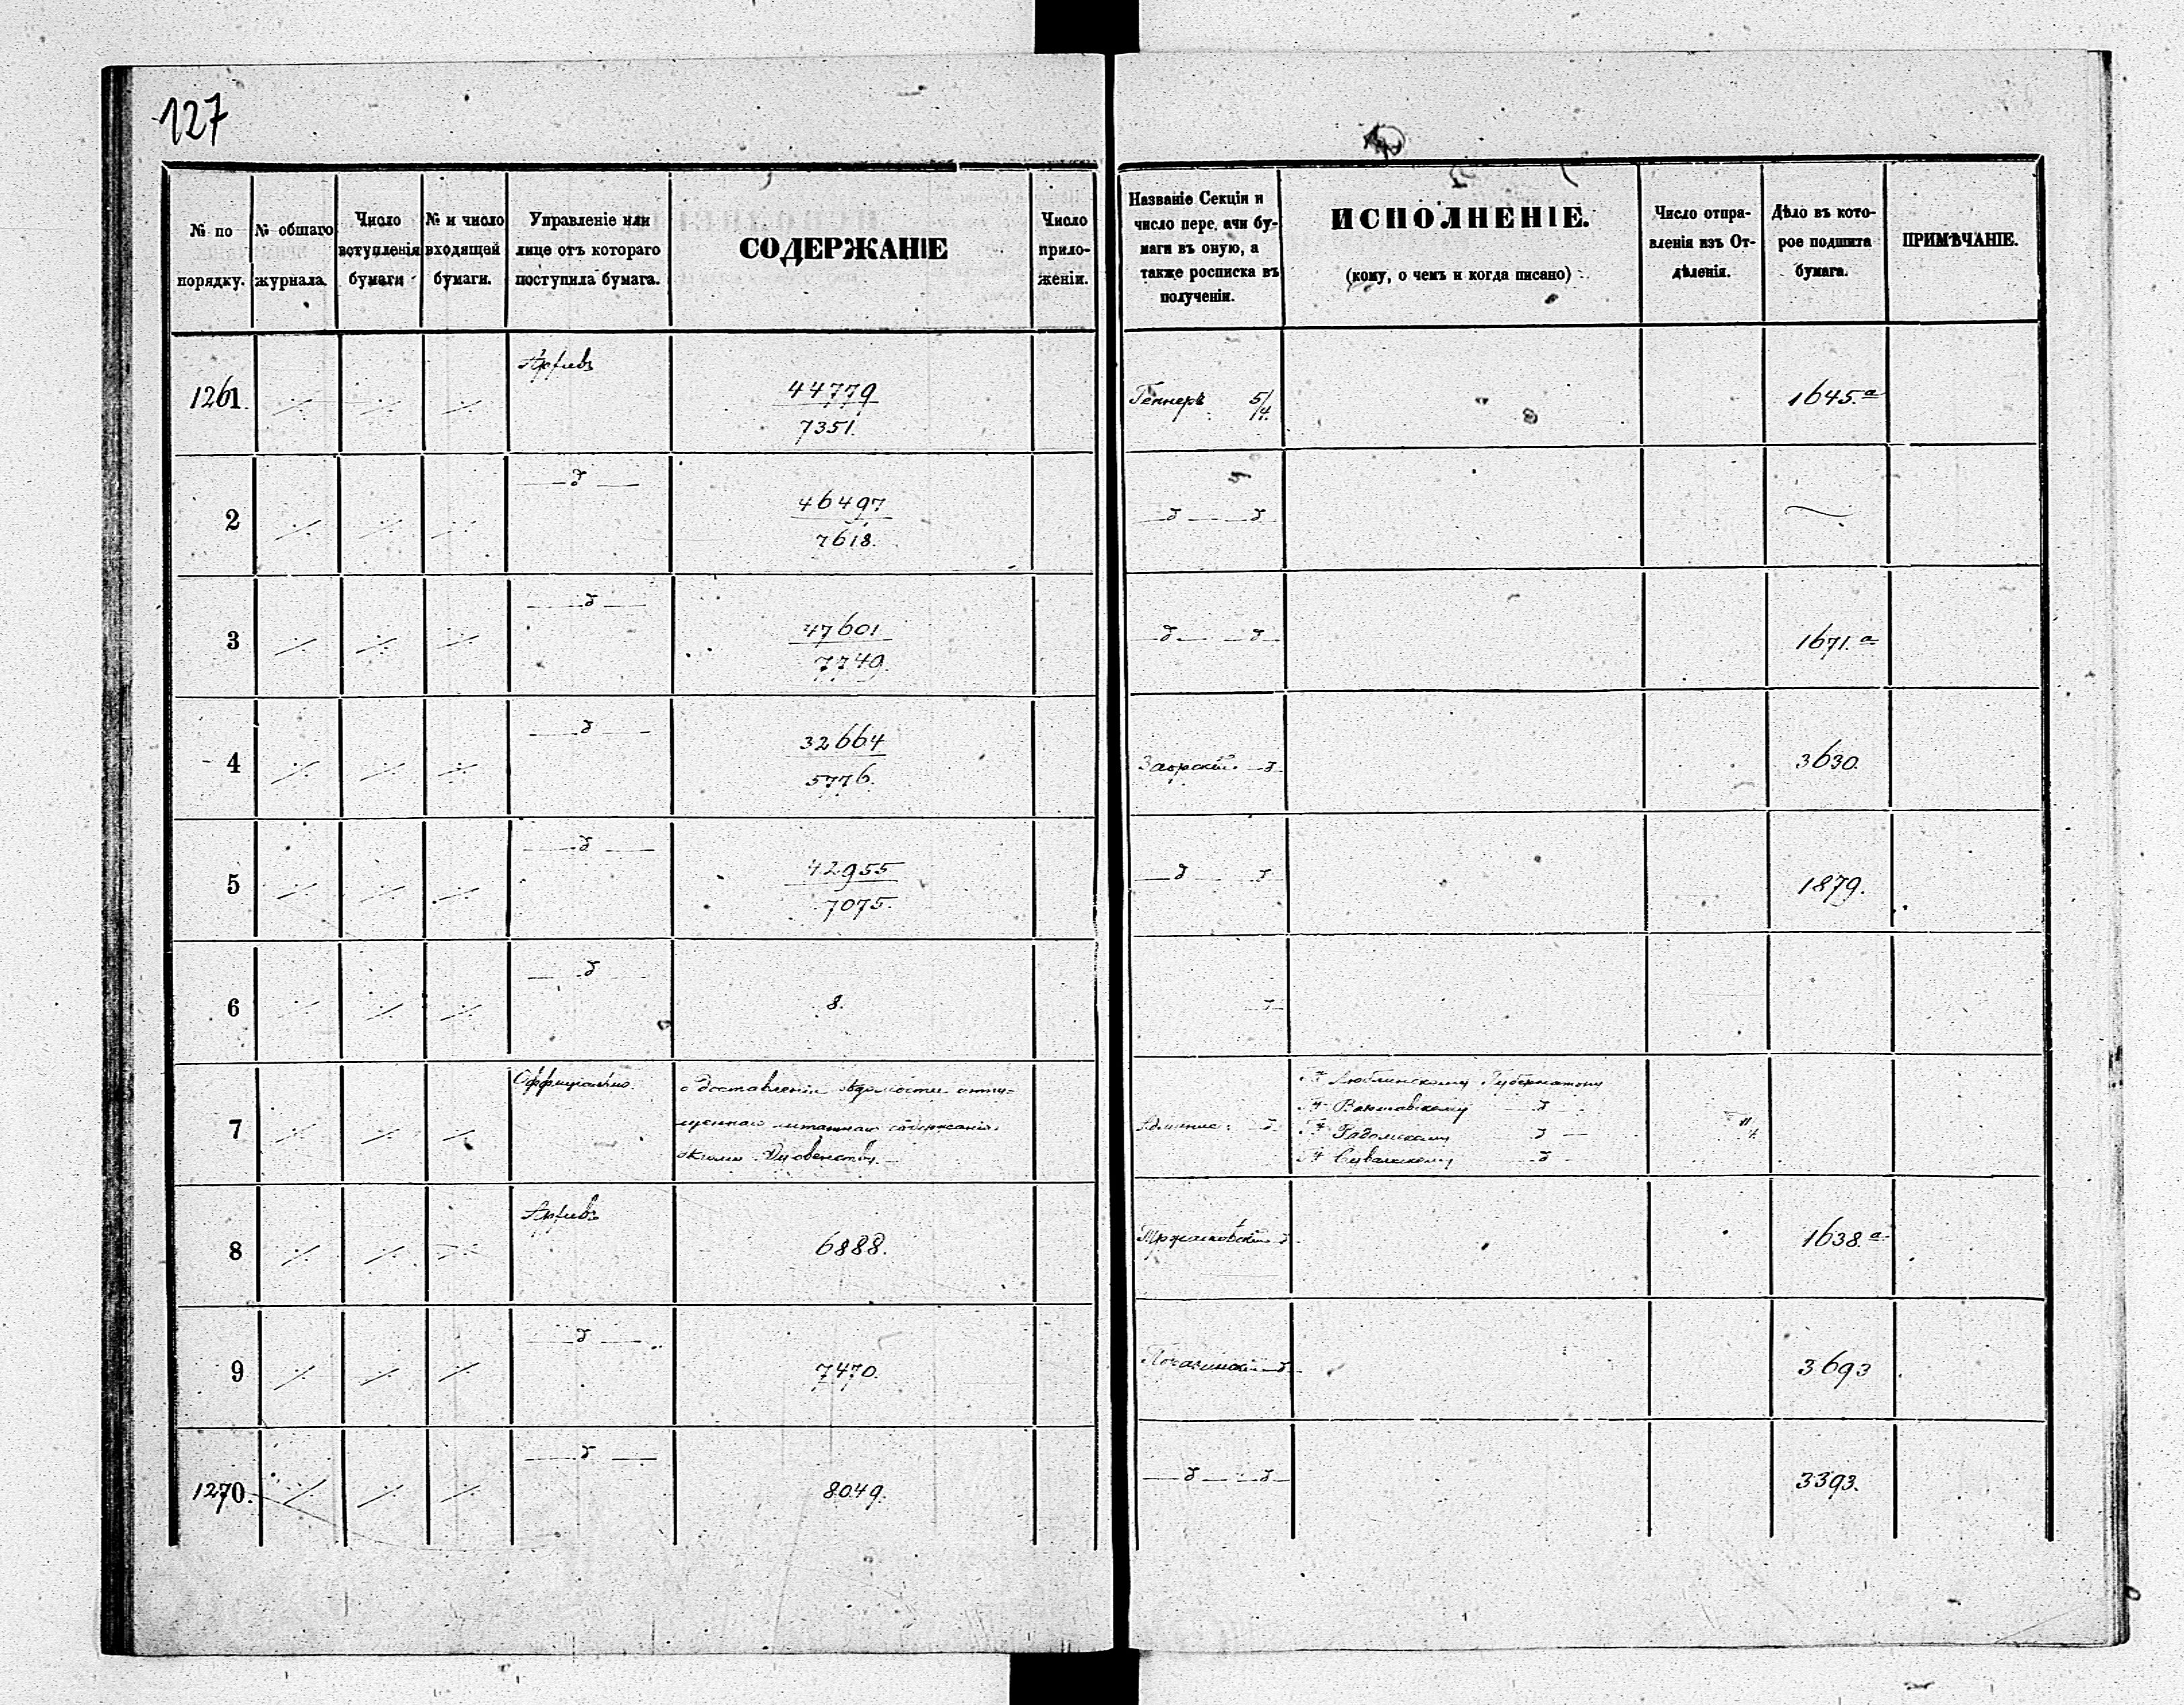 127
№ по порядку.
№ общаго журнала.
Число вступленія бумаги
№ и число входящей бумаги.
Управленіе или лице отъ котораго поступила бумага.
СОДЕРЖАНІЕ
Число приложеніи.
Названіе Секціи и число пере. ачи бумаги въ оную, а также росписка въ полученіи.
ИСПОЛНЕНІЕ.
(кому, о чемъ и когда писано)
Число отправленія изъ Отдѣленія.
Дѣло въ которое подшита бумага.
ПРИМѢЧАНІЕ.
1261. Архивъ 44779 / 7351. Геннеръ 5/4. 1645.а
2 —д— 46497 / 7618. —д— —д—
3 —д— 47601 / 7749. —д— —д— 1671.а
4 —д— 32664 / 5776. —д— 3630.
5 —д— 42955 / 7075. —д— —д— 1879.
6 —д— 8. —д—
7 Оффиціально. о доставленіи вѣдомости
штатнаго содержанія
Духовенству.
Г. Люблинскому Губернатору
Г. Варшавскому —д—
Г. Радомскому —д—
Г. Сувалкскому —д—
8 Архивъ 6888. 1638.а
9 —д— 7470. 3693
1270. —д— 8049. —д— —д— 3393.